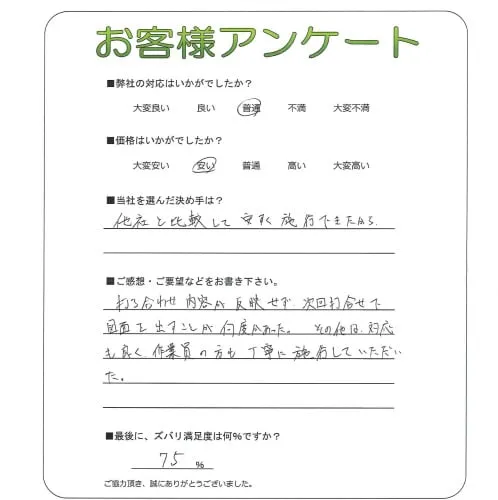 お客様アンケート
■弊社の対応はいかがでしたか?
大変良い 良い 普通 不満 大変不満
■価格はいかがでしたか?
大変安い 安い 普通 高い 大変高い
■当社を選んだ決め手は?
他社と比較して安く施行できたから
■ご感想・ご要望などをお書き下さい。
打ち合わせ内容が反映せず次回打合せで
図面を出すことが何度かあった。その他は対応
も良く作業員の方も丁寧に施行していただい
た。
■最後に、ズバリ満足度は何%ですか?
75 %
ご協力頂き、誠にありがとうございました。